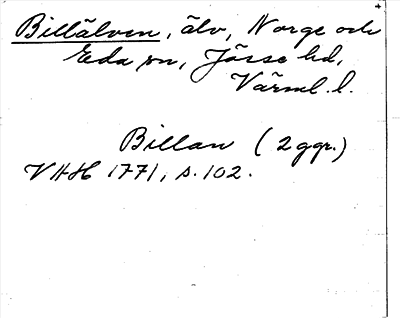 Billälven, älv, Norge och
Eda sn, Jösse hd,
Värml. l.
Billan (2 ggr.)
VHH 1771, s. 102.